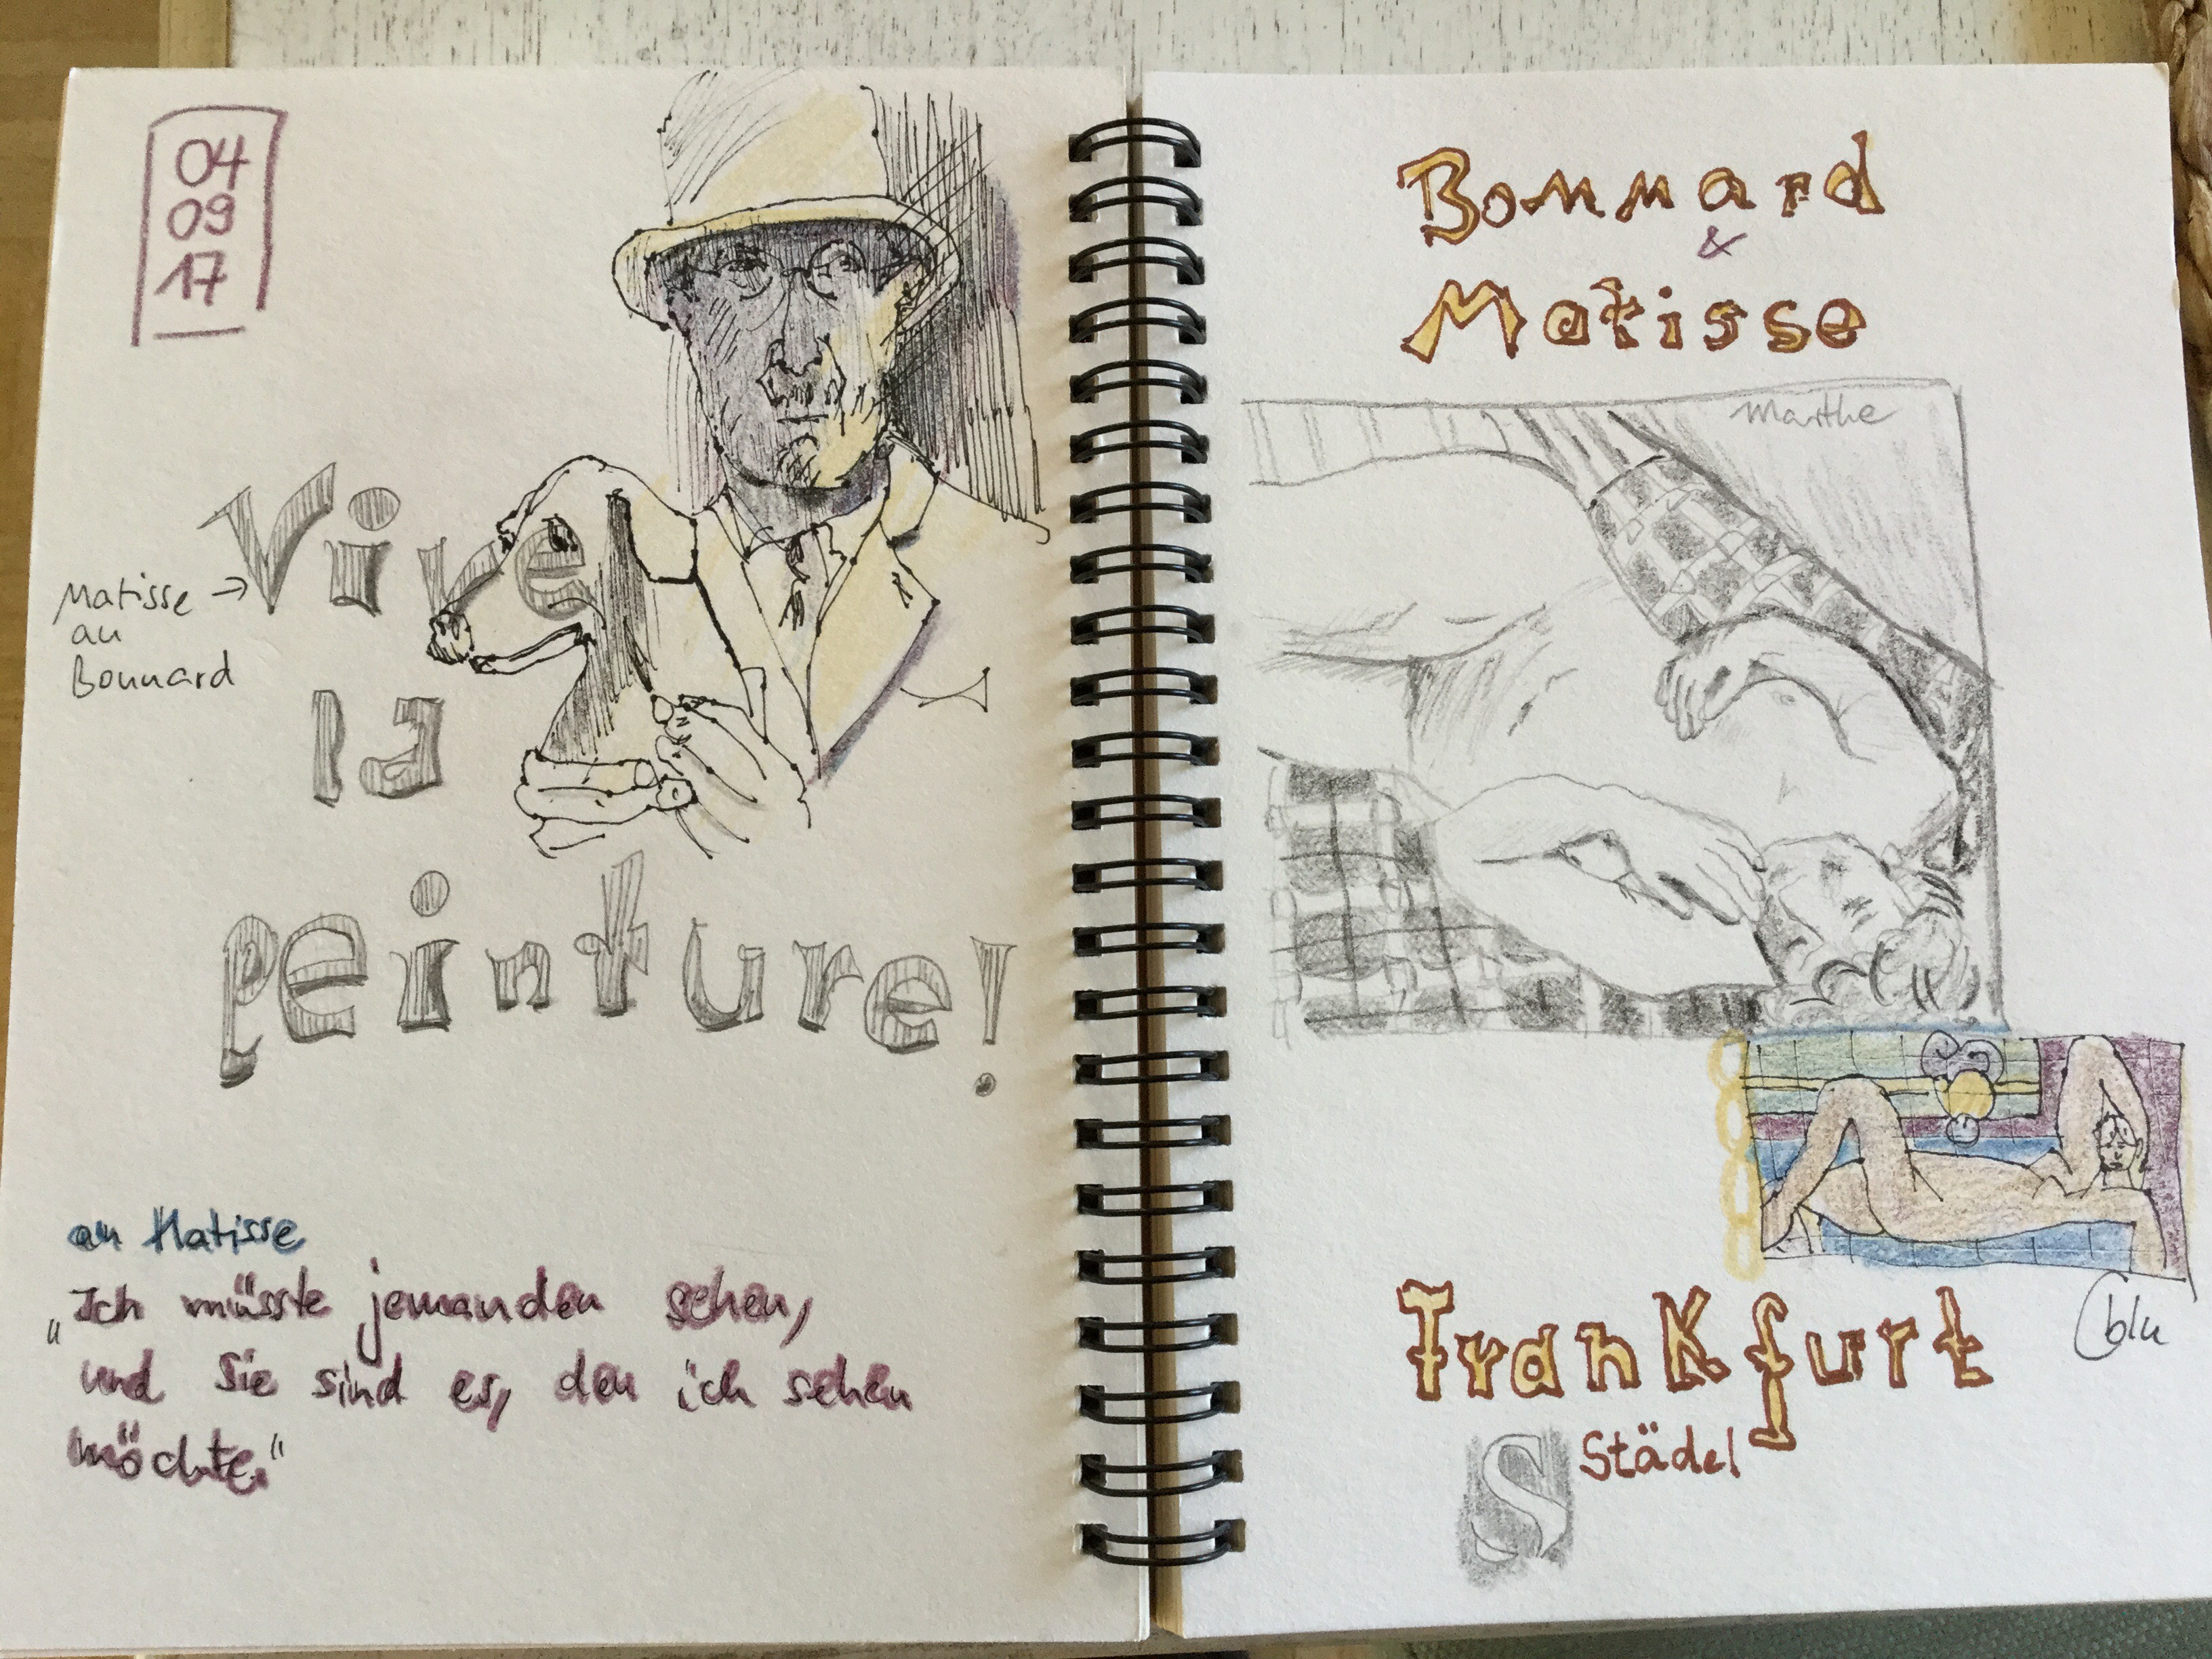 04
09
17
Matisse →
an
Bonnard
Vive
la
peinture!
an Matisse
„Ich müsste jemanden sehen,
und sie sind es, den ich sehen
möchte."
Bonnard
&
Matisse
Marthe
blu
Frankfurt
Städel
S